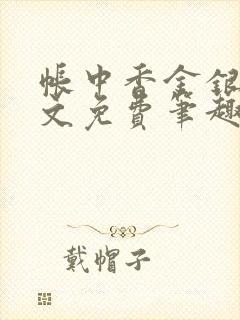 帐中香金银
文免费笔趣
戴帽子